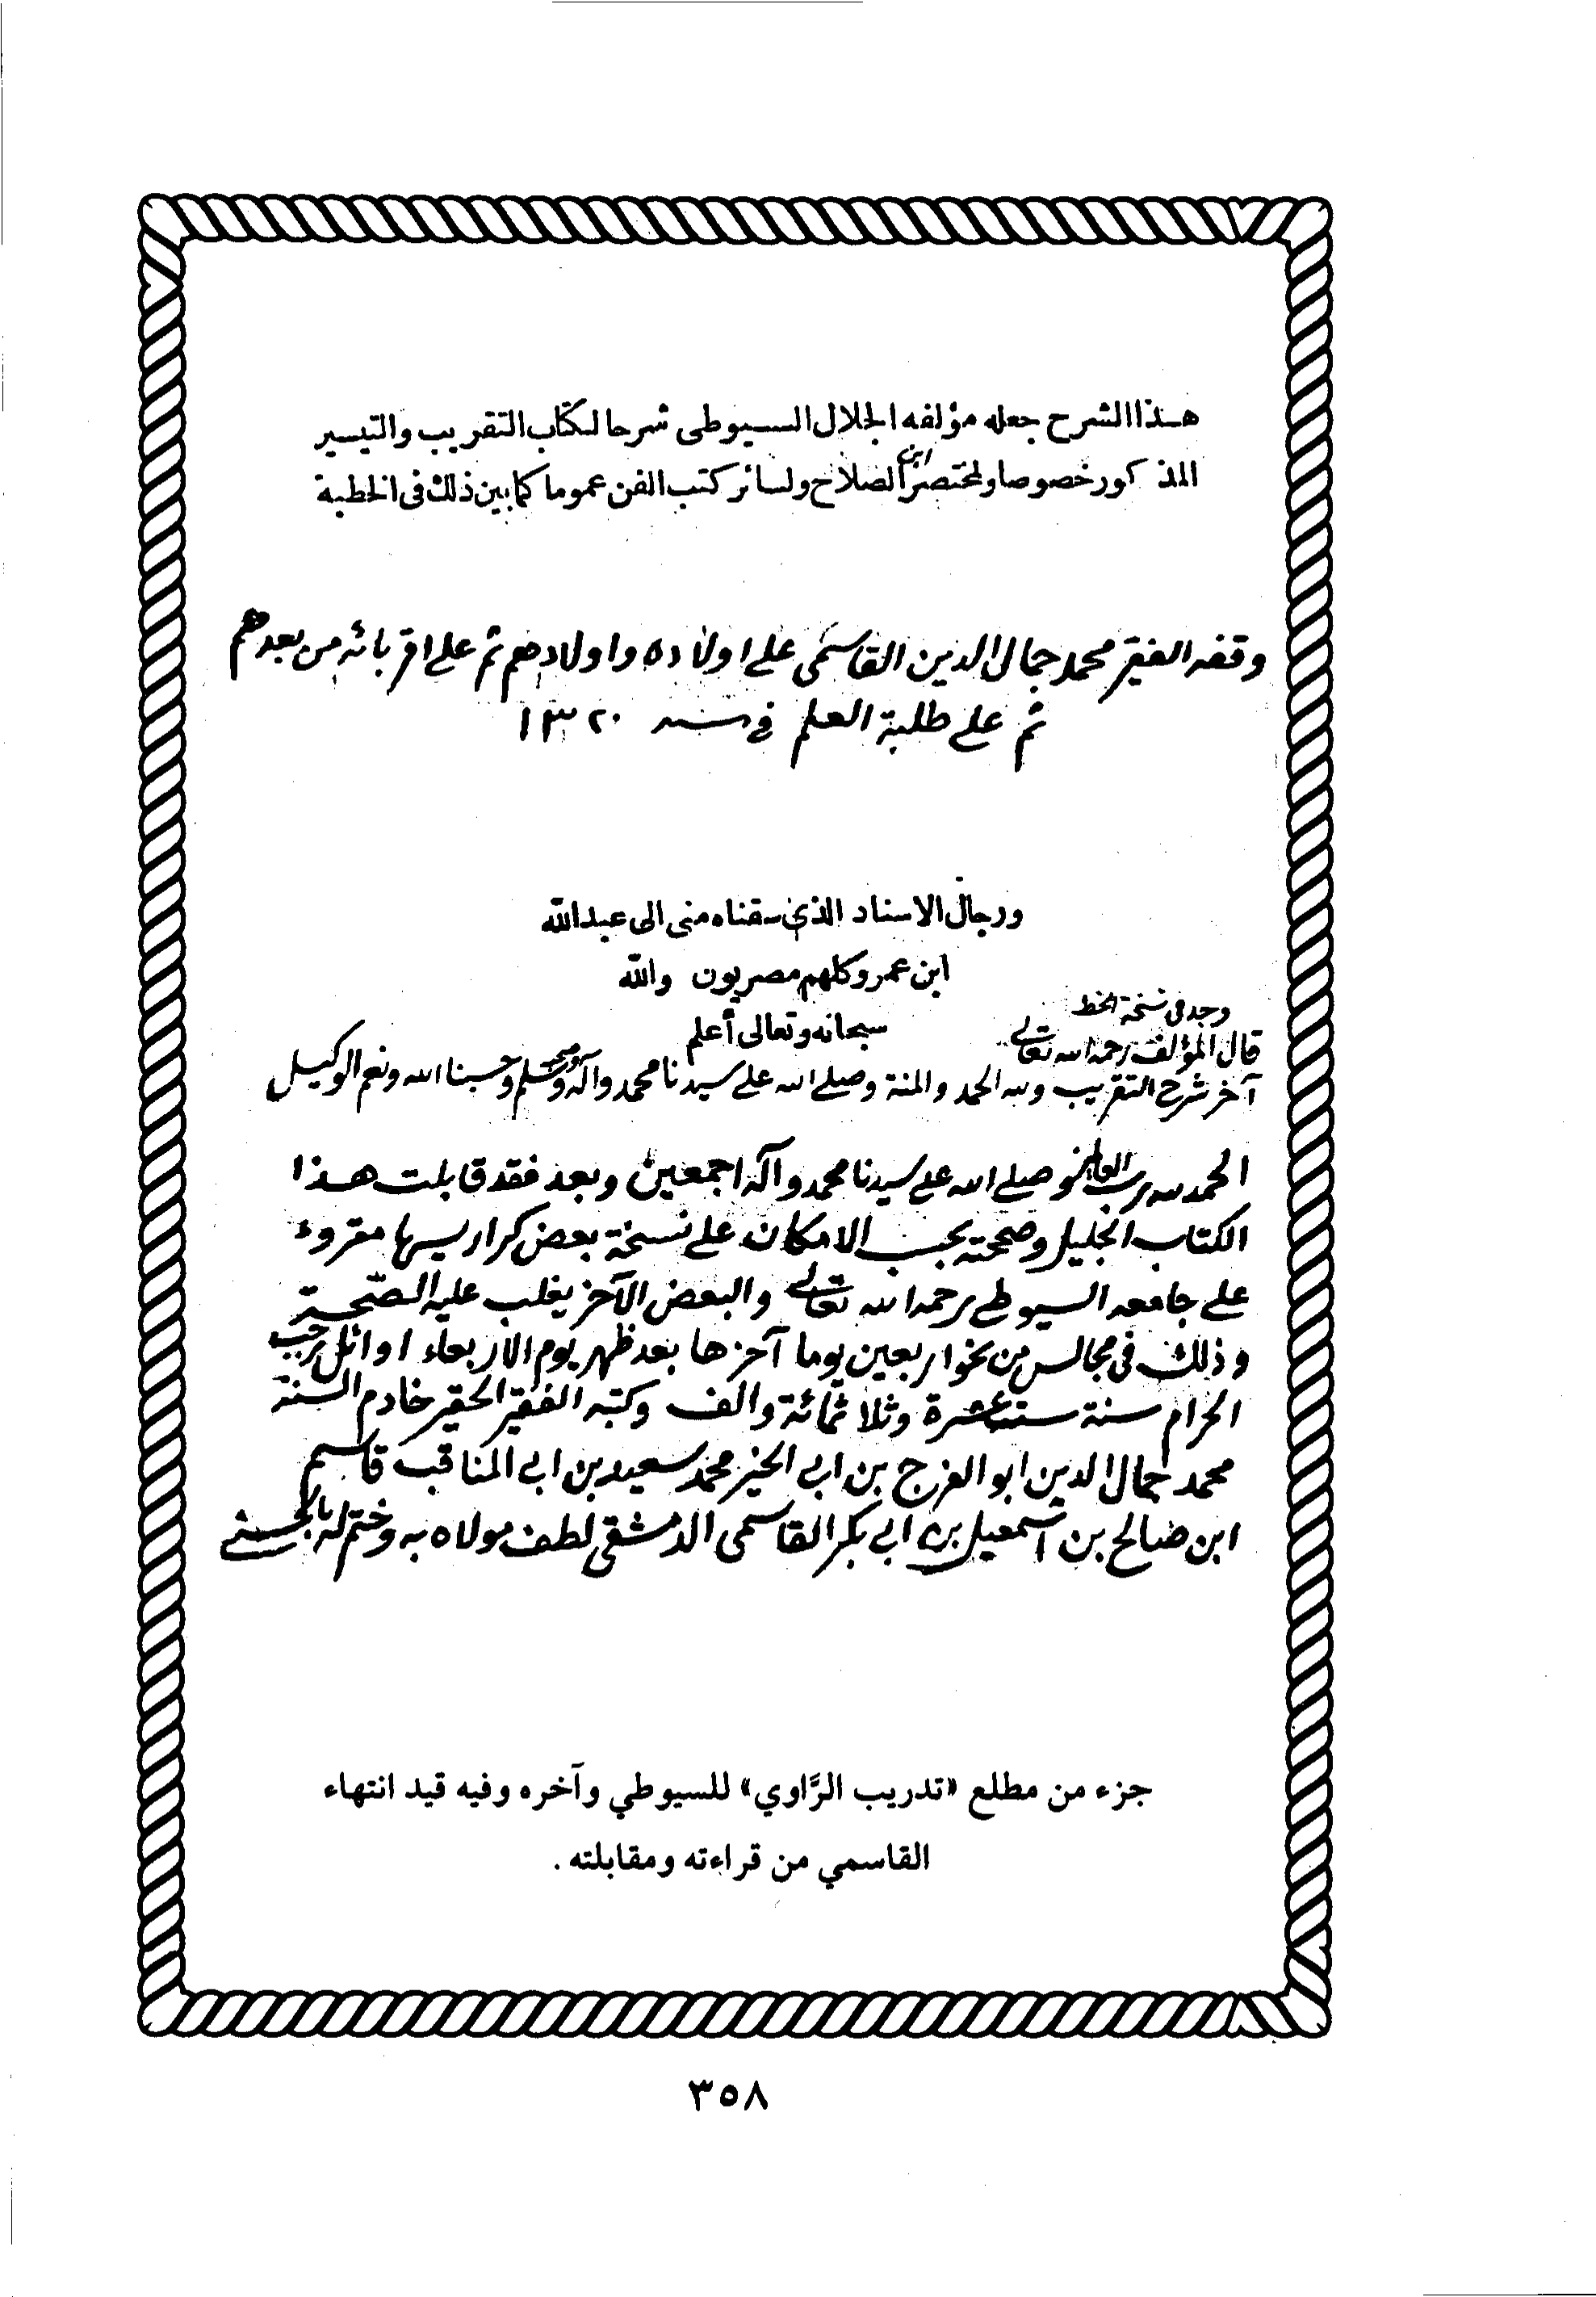 هذا الشرح جعله مؤلفه الجلال السيوطى شرحا لكتاب التقريب والتيسير
المذكور خصوصا ولمختصر ابن الصلاح ولسائر كتب الفن عموما كما بين ذلك فى الخطبة
وقفه الفقير محمد جمال الدين القاسمى على اولاده واولادهم ثم على اقربائه من بعدهم
ثم على طلبة العلم في سنه ١٣٢٠
ورجال الاسناد الذى سقناه منى الى عبدالله
ابن عمرو كلهم مصريون والله
سبحانه وتعالى أعلم
وجد فى نسخة الخط
قال المؤلف رحمه الله تعالى
آخر شرح التقريب ولله الحمد والمنة وصلى الله على سيدنا محمد وآله وصحبه وسلم وحسبنا الله ونعم الوكيل
الحمد لله رب العالمين وصلى الله على سيدنا محمد وآله اجمعين وبعد فقد قابلت هذا
الكتاب الجليل وصححته بحسب الامكان على نسخة بعض كراريسها مقروء
على جامعه السيوطى رحمه الله تعالى والبعض الآخر يغلب عليه الصّحة
وذلك فى مجالس من نحو اربعين يوما آخرها بعد ظهر يوم الاربعاء اوائل رجب
الحرام سنة ست عشرة وثلاثمائة والف وكتبه الفقير الحقير خادم السنة
محمد جمال الدين ابو الفرج بن ابي الخير محمد سعيد بن ابي المناقب قاسم
ابن صالح بن اسمعيل بن ابي بكر القاسمى الدمشقى لطف مولاه به وختم له بالحسنى
جزء من مطلع «تدريب الرَّاوي» للسيوطي وآخره وفيه قيد انتهاء
القاسمي من قراءته ومقابلته .
٣٥٨